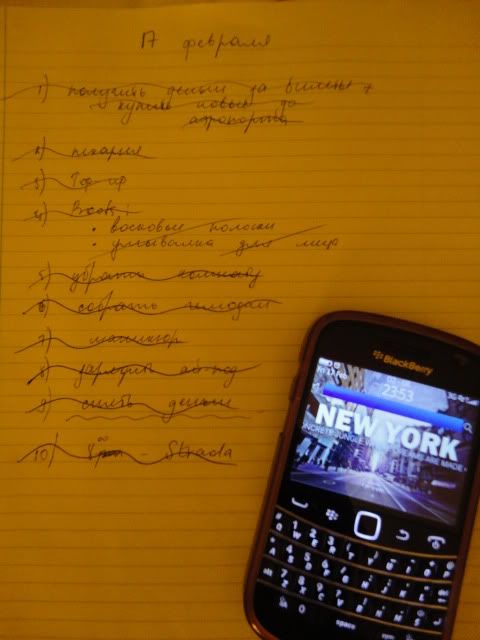 17 февраля
1) получить деньги за билеты +
купить новые до
аэропорта
2) пекарня
3) Top-up
4) Boots:
• восковые полоски
• умывалка для лица
5) убрать комнату
6) собрать чемодан
7) маникюр
8) зарядить ай-под
9) снять деньги
10) - Strada
BlackBerry
23:53
3G
NEW YORK
CONCRETE JUNGLE WHERE DREAMS ARE MADE
space